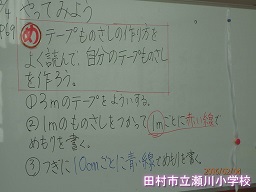 やってみよう
P69
め テープものさしの作り方を
よく読んで、自分のテープものさし
を作ろう。
①3mのテープをよういする。
②1mのものさしをつかって1mごとに赤い線で
めもりを書く。
③つぎに10cmごとに青い線でめもりを書く。
田村市立瀬川小学校